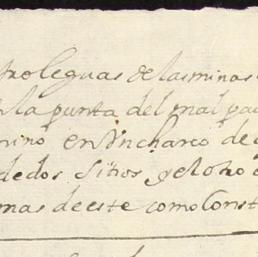 tro leguas de las minas
la punta del mal pa
rino en Un charco de
de dos sitios y el otro
mas de este como Const